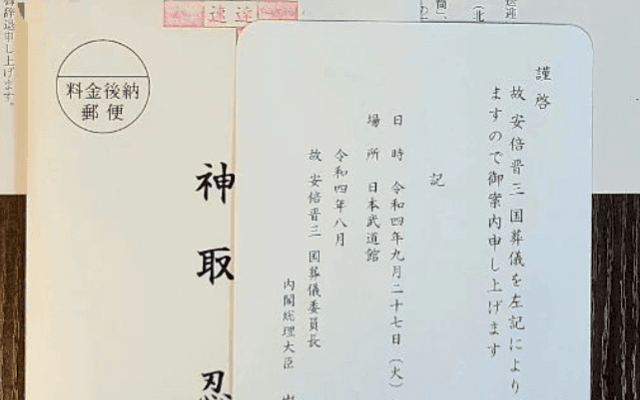 謹啓
故 安倍晋三 国葬儀を左記により
ますので御案内申し上げます
記
日 時 令和四年九月二十七日(火)
場 所 日本武道館
令和四年八月
故 安倍晋三 国葬儀委員長
内閣総理大臣
速達
料金後納
郵便
神取 忍
御辞退申し上げます。